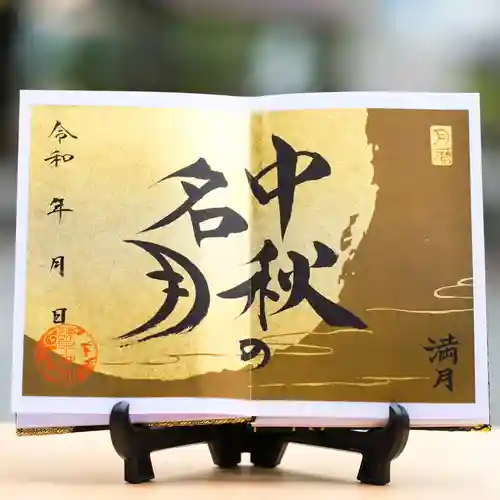 月暦
満月
中秋の
名月
令和 年 月 日